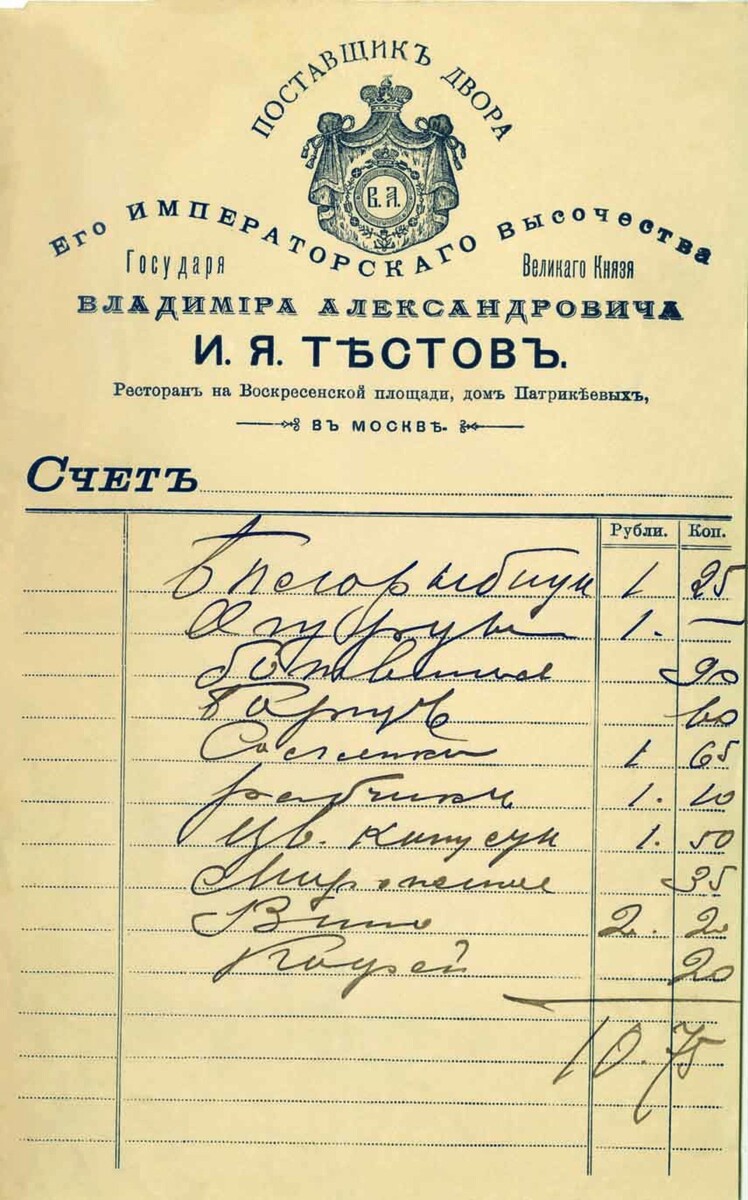 ПОСТАВЩИКЪ ДВОРА
В.А.
ЕГО ИМПЕРАТОРСКАГО ВЫСОЧЕСТВА
ГОСУДАРЯ ВЕЛИКАГО КНЯЗЯ
ВЛАДИМІРА АЛЕКСАНДРОВИЧА
И. Я. ТѢСТОВЪ.
Ресторанъ на Воскресенской площади, домъ Патрикѣевыхъ,
ВЪ МОСКВѢ.
СЧЕТЪ
Рубли. Коп.
1 25
1. —
ботвинья 90
60
1 65
рябчики 1. 10
Цв. капусты 1. 50
Мороженое 35
Вино 2. 20
Кофей 20
10. 75